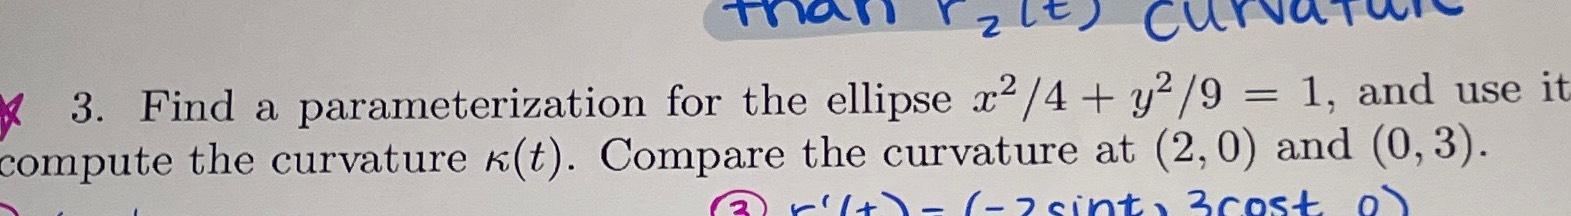 than r₂(t) curvature
3. Find a parameterization for the ellipse x²/4 + y²/9 = 1, and use it
compute the curvature κ(t). Compare the curvature at (2, 0) and (0, 3).
③ r'(t) = (-2sint, 3cost, 0)